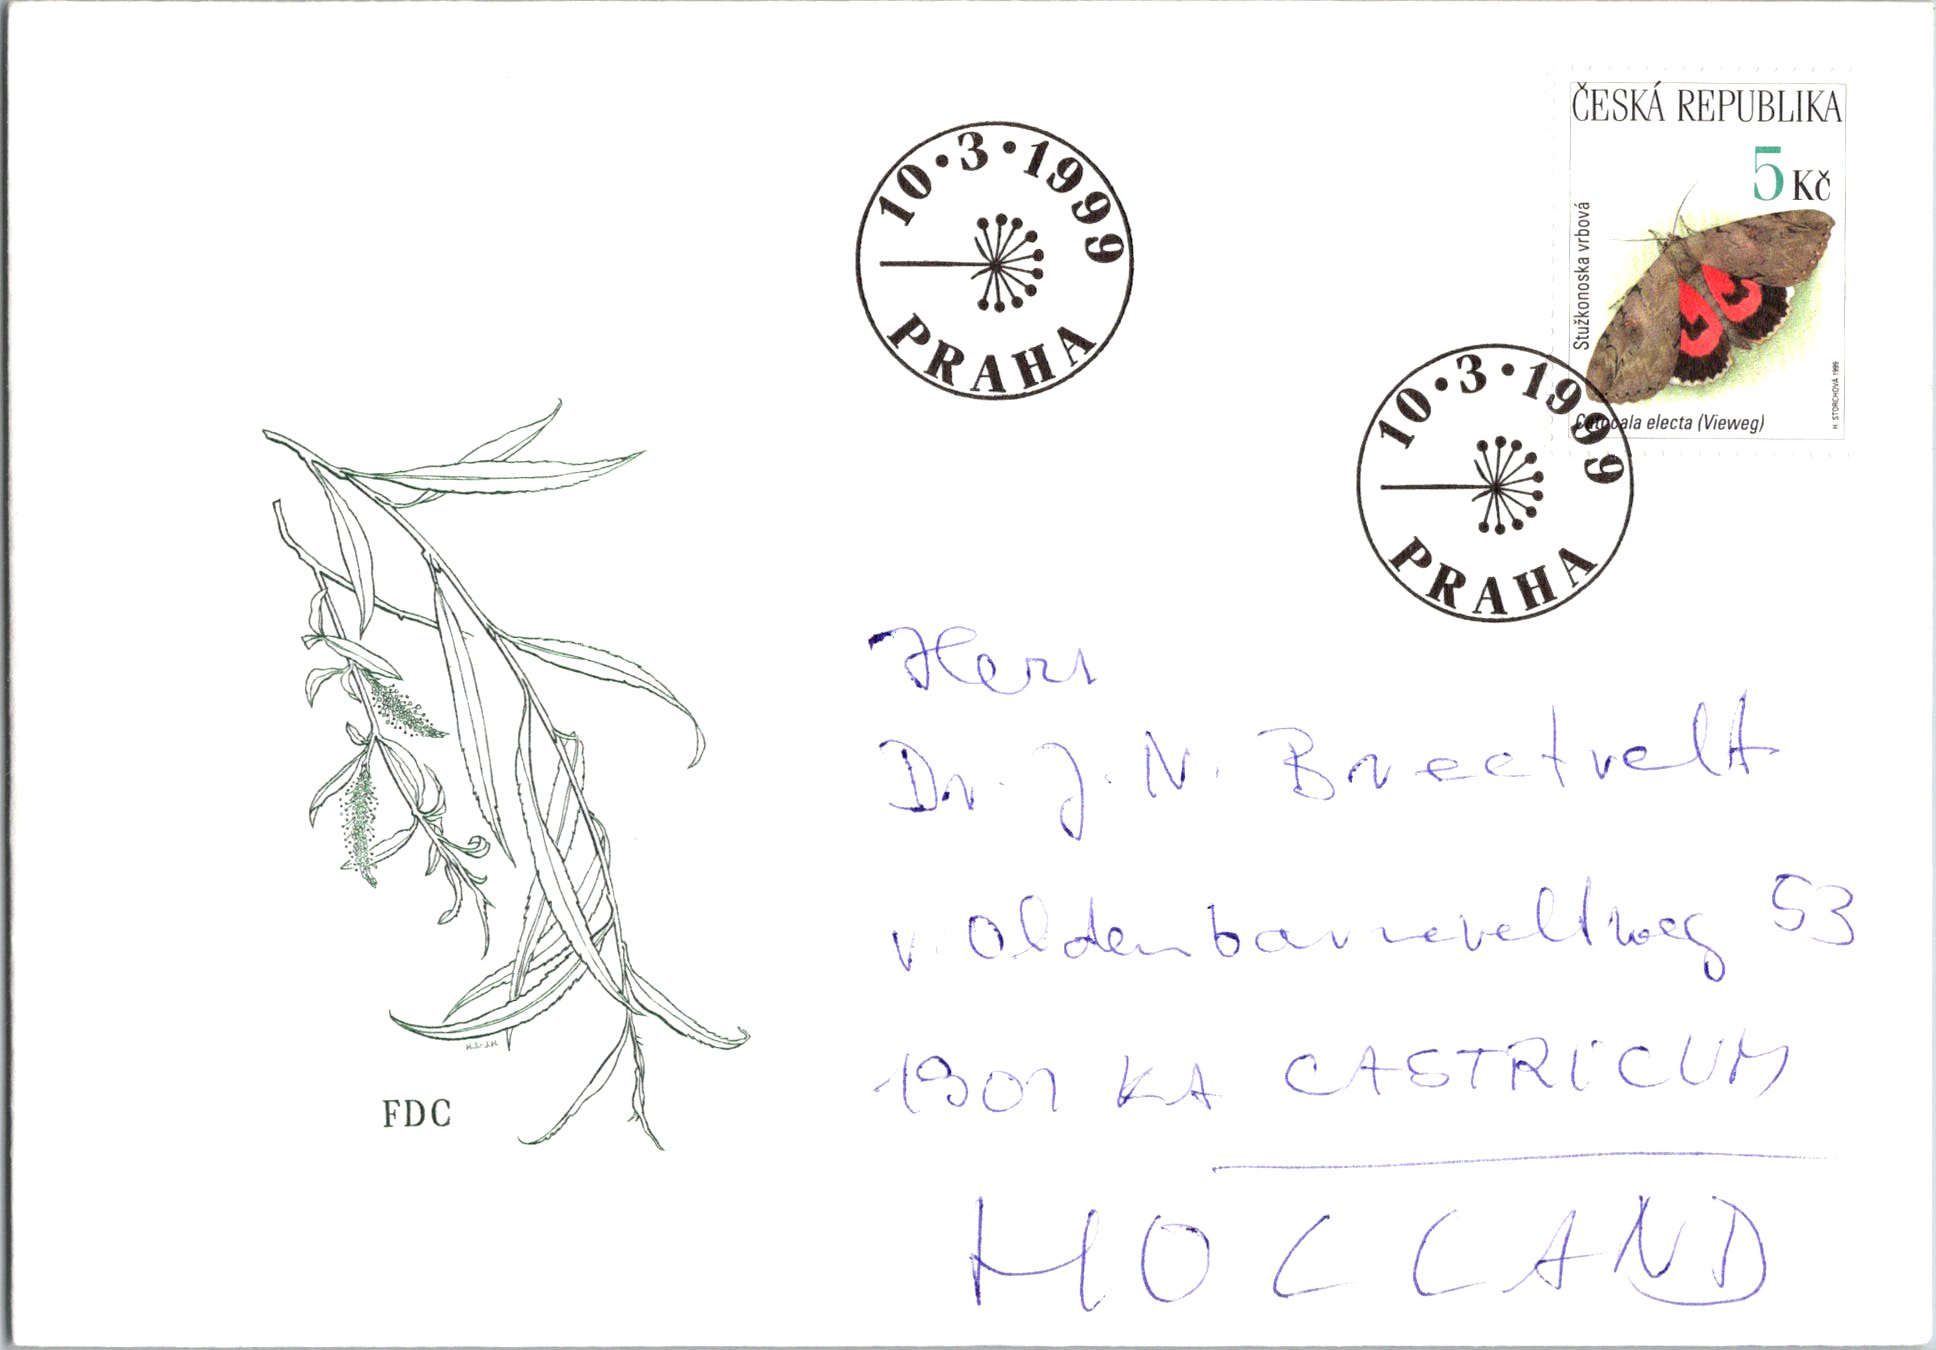 ČESKÁ REPUBLIKA
5 Kč
Stužkonoska vrbová
Catocala electa (Vieweg)
H. STORCHOVÁ 1999
10 • 3 • 1999
PRAHA
10 • 3 • 1999
PRAHA
Herr
Dr. J. N. Breetvelt
v. Oldenbarneveltweg 53
1901 KA CASTRICUM
HOLLAND
FDC